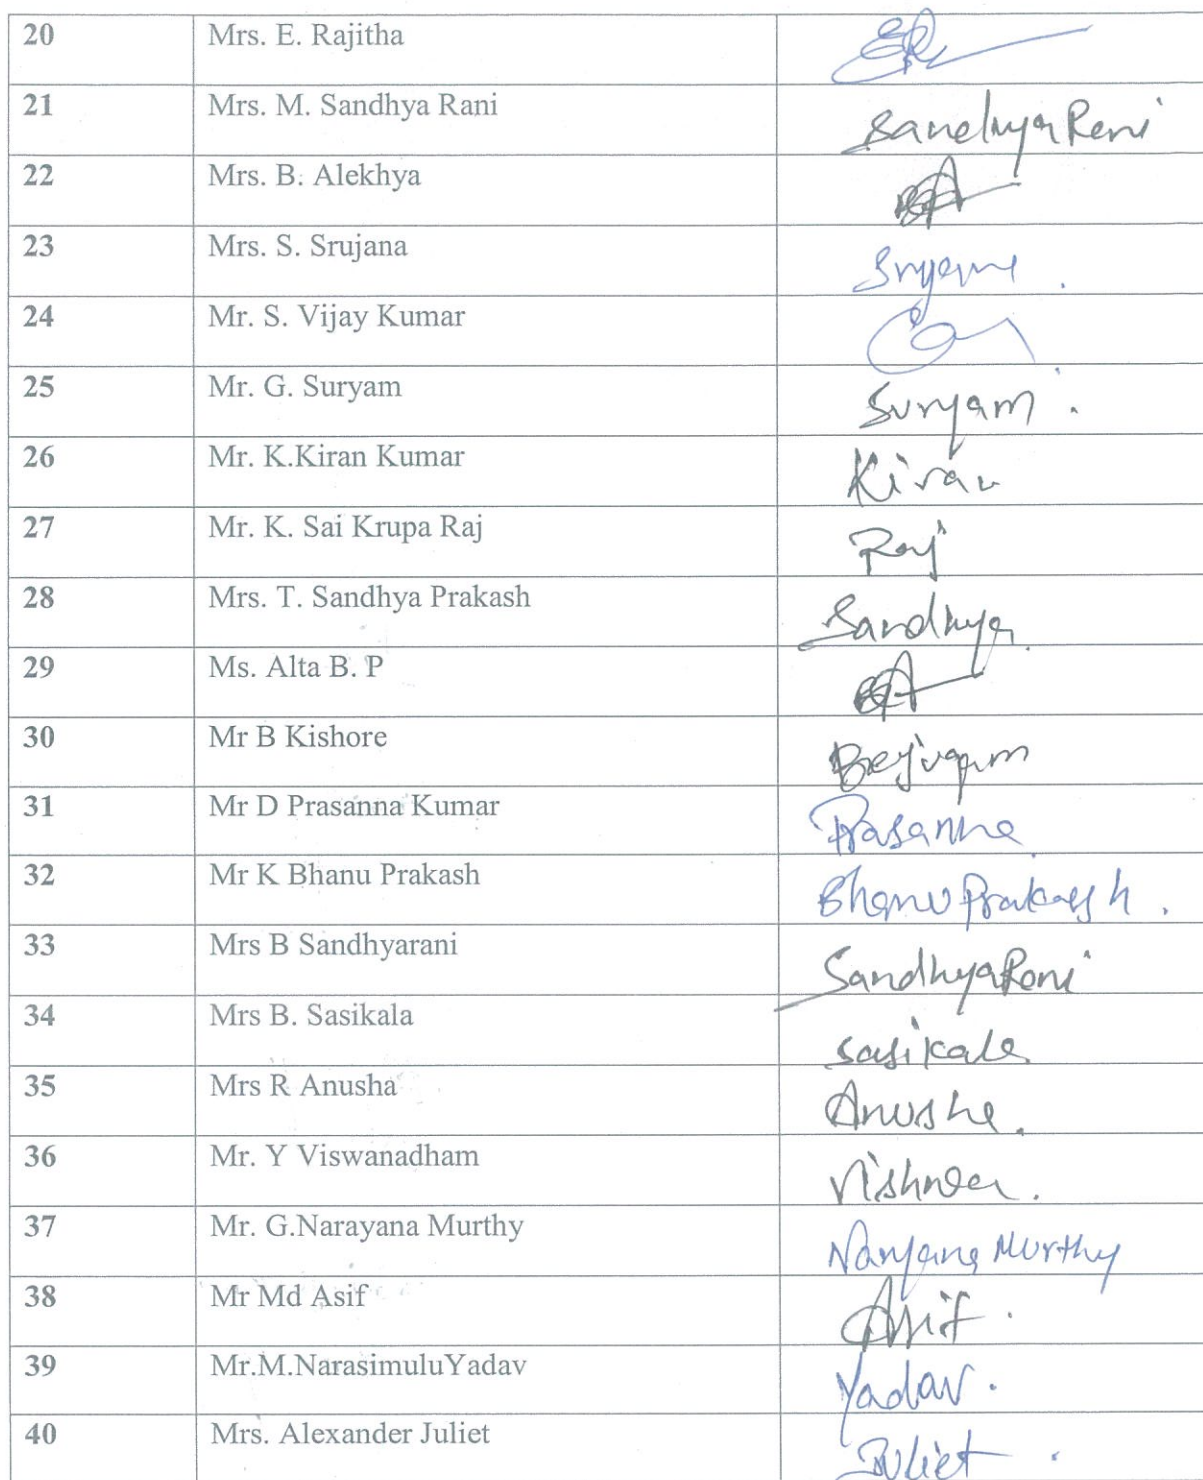 20 Mrs. E. Rajitha
21 Mrs. M. Sandhya Rani Sandhya Rani
22 Mrs. B. Alekhya
23 Mrs. S. Srujana
24 Mr. S. Vijay Kumar
25 Mr. G. Suryam Suryam .
26 Mr. K.Kiran Kumar Kiran
27 Mr. K. Sai Krupa Raj Raj
28 Mrs. T. Sandhya Prakash Sandhya
29 Ms. Alta B. P
30 Mr B Kishore
31 Mr D Prasanna Kumar Prasanna
32 Mr K Bhanu Prakash Bhanu Prakash .
33 Mrs B Sandhyarani Sandhya Rani
34 Mrs B. Sasikala Sasikala
35 Mrs R Anusha Anusha .
36 Mr. Y Viswanadham
37 Mr. G.Narayana Murthy Narayana Murthy
38 Mr Md Asif Asif .
39 Mr.M.NarasimuluYadav Yadav .
40 Mrs. Alexander Juliet Juliet .